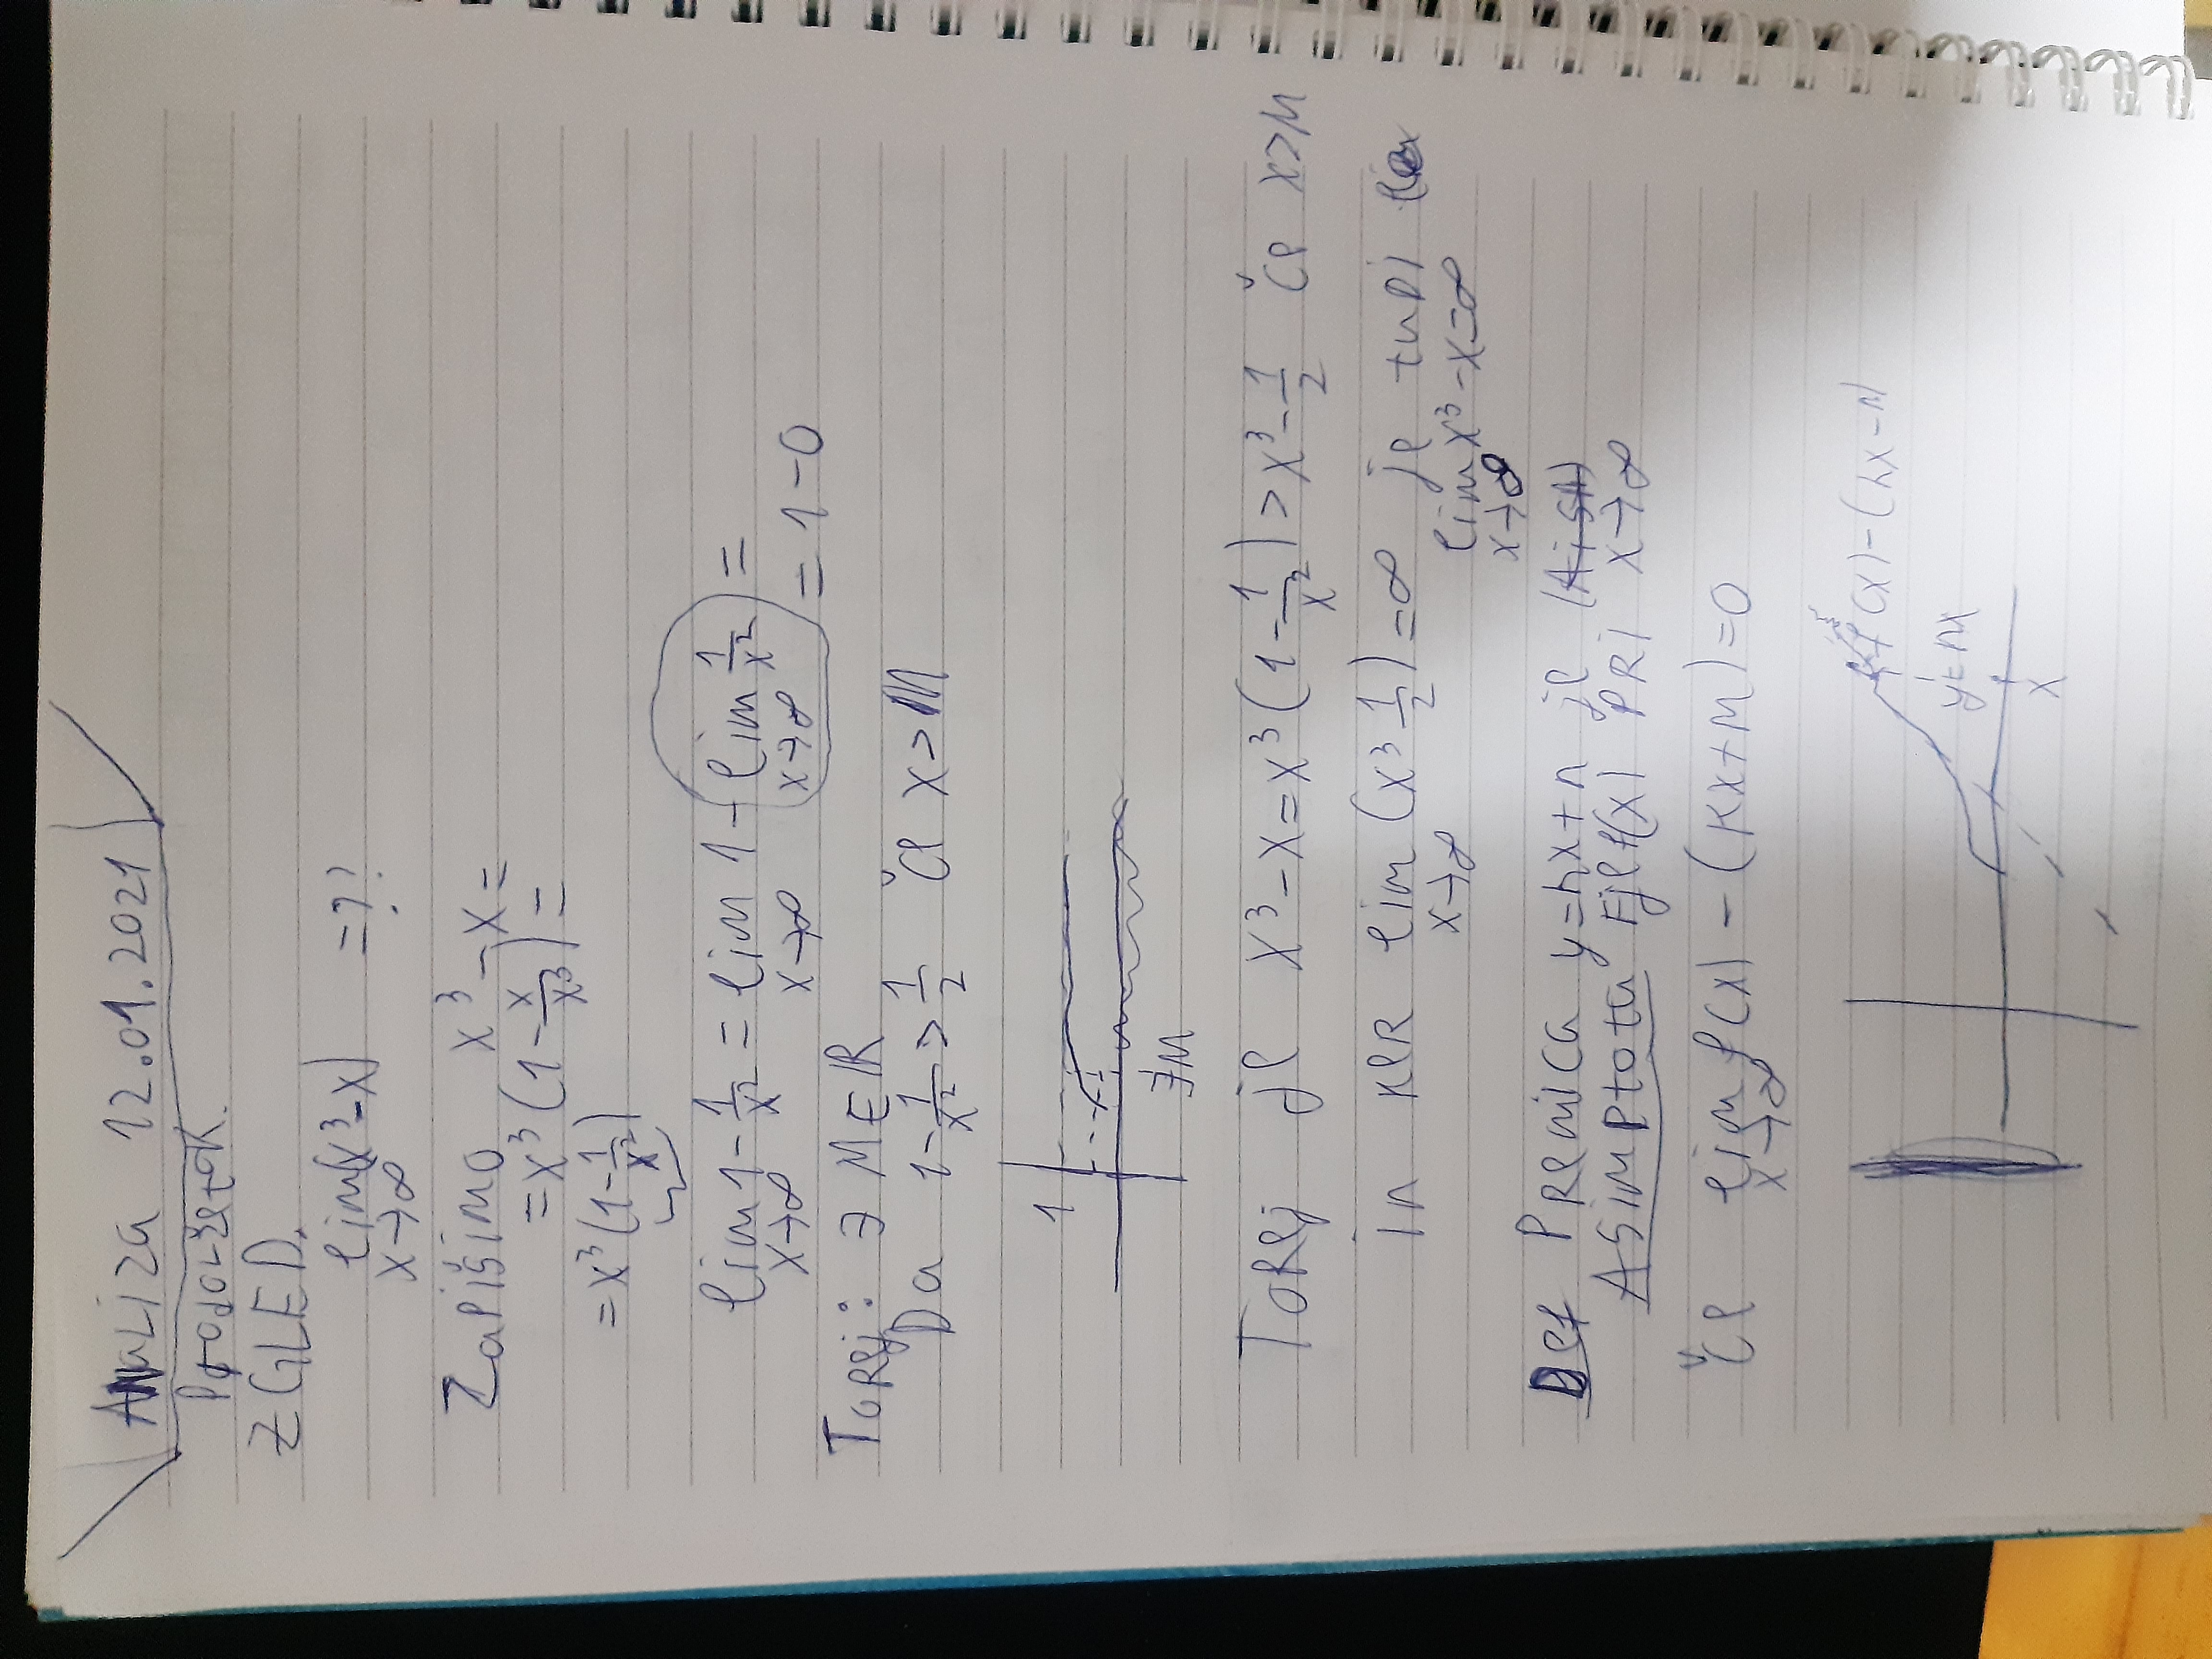 Analiza 12.01.2021
Prodolžetok.
ZGLED.
lim(x³-x) =??
x→∞
Zapišimo x³-x=
=x³(1-x/x³)=
=x³(1-1/x²)
lim 1-1/x² = lim 1-lim 1/x² =
x→∞ x→∞ x→∞ = 1-0
Torej: ∃ M∈ℝ
Da 1-1/x²>1/2 Če x>M
1
∃M
Torej je x³-x=x³(1-1/x²)>x³-1/2 Če x>M
in ker lim(x³ 1/2)=∞ je tudi
x→∞ lim x³-x=∞
x→∞
Def Premica y=kx+n je
Asimptota Fje f(x) PRi x→∞
Če lim f(x)-(kx+n)=0
x→∞
f(x)-(kx-n)
y=kx
x